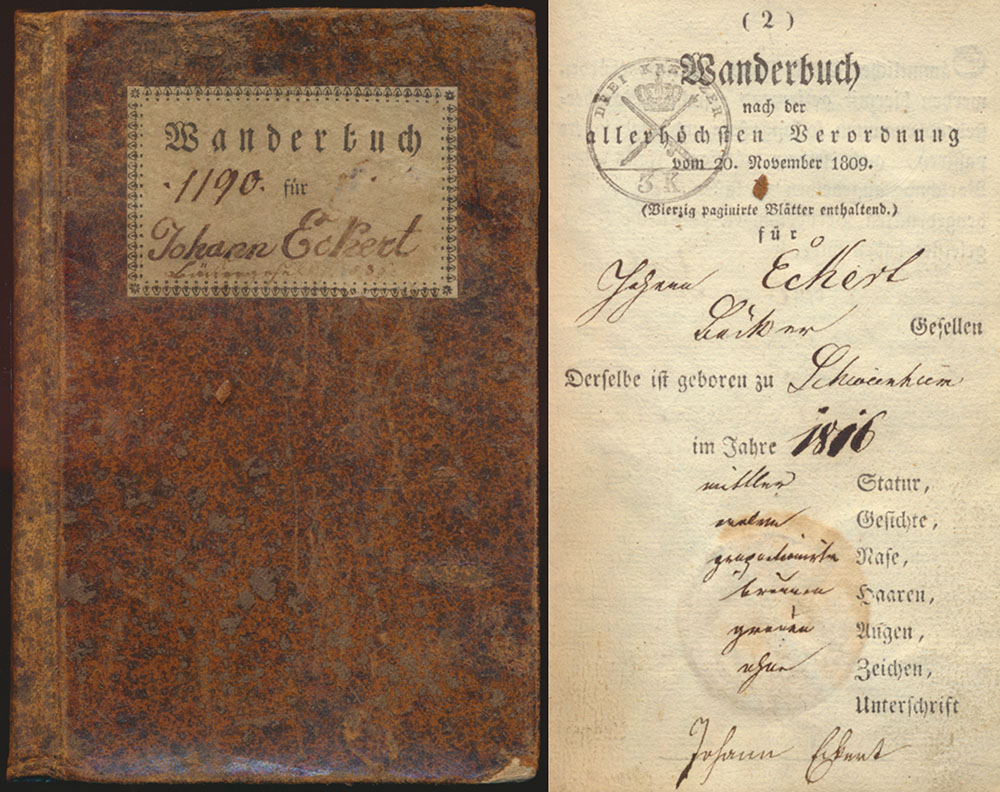 Wanderbuch
1190. für
Johann Eckert
( 2 )
Wanderbuch
nach der
allerhöchsten Verordnung
vom 20. November 1809.
DREI KREUZER
3 K
(Vierzig paginirte Blätter enthaltend.)
für
Johann Eckert
Bäcker Gesellen
Derselbe ist geboren zu Schweinheim
im Jahre 1816
mittler Statur,
ovalem Gesichte,
proportionirte Nase,
braunen Haaren,
grauen Augen,
ohne Zeichen,
Unterschrift
Johann Eckert